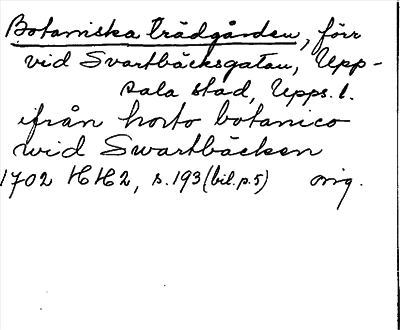 Botaniska trädgården, förr
vid Svartbäcksgatan, Upp-
sala stad, Upps. l.
ifrån horto botanico
wid Swartbäcken
1702 HH2, s. 193 (bil. p. 5) orig.